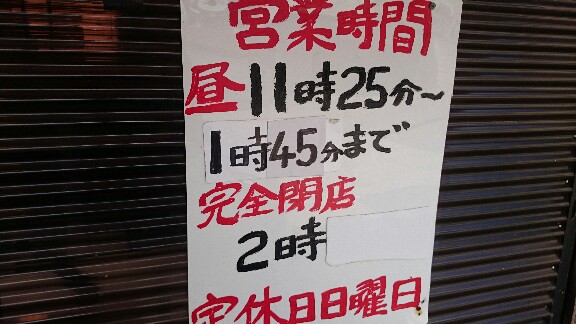 営業時間
昼11時25分~
1時45分まで
完全閉店
2時
定休日日曜日